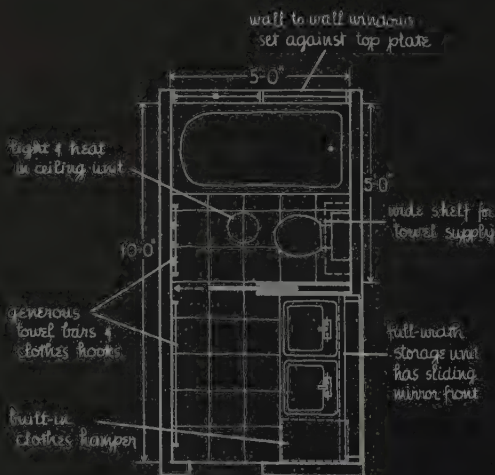 wall to wall windows
set against top plate
5'-0"
light & heat
in ceiling unit
5'-0"
wide shelf for
towel supply
10'-0"
generous
towel bars &
clothes hooks
full-width
storage unit
has sliding
mirror front
built-in
clothes hamper